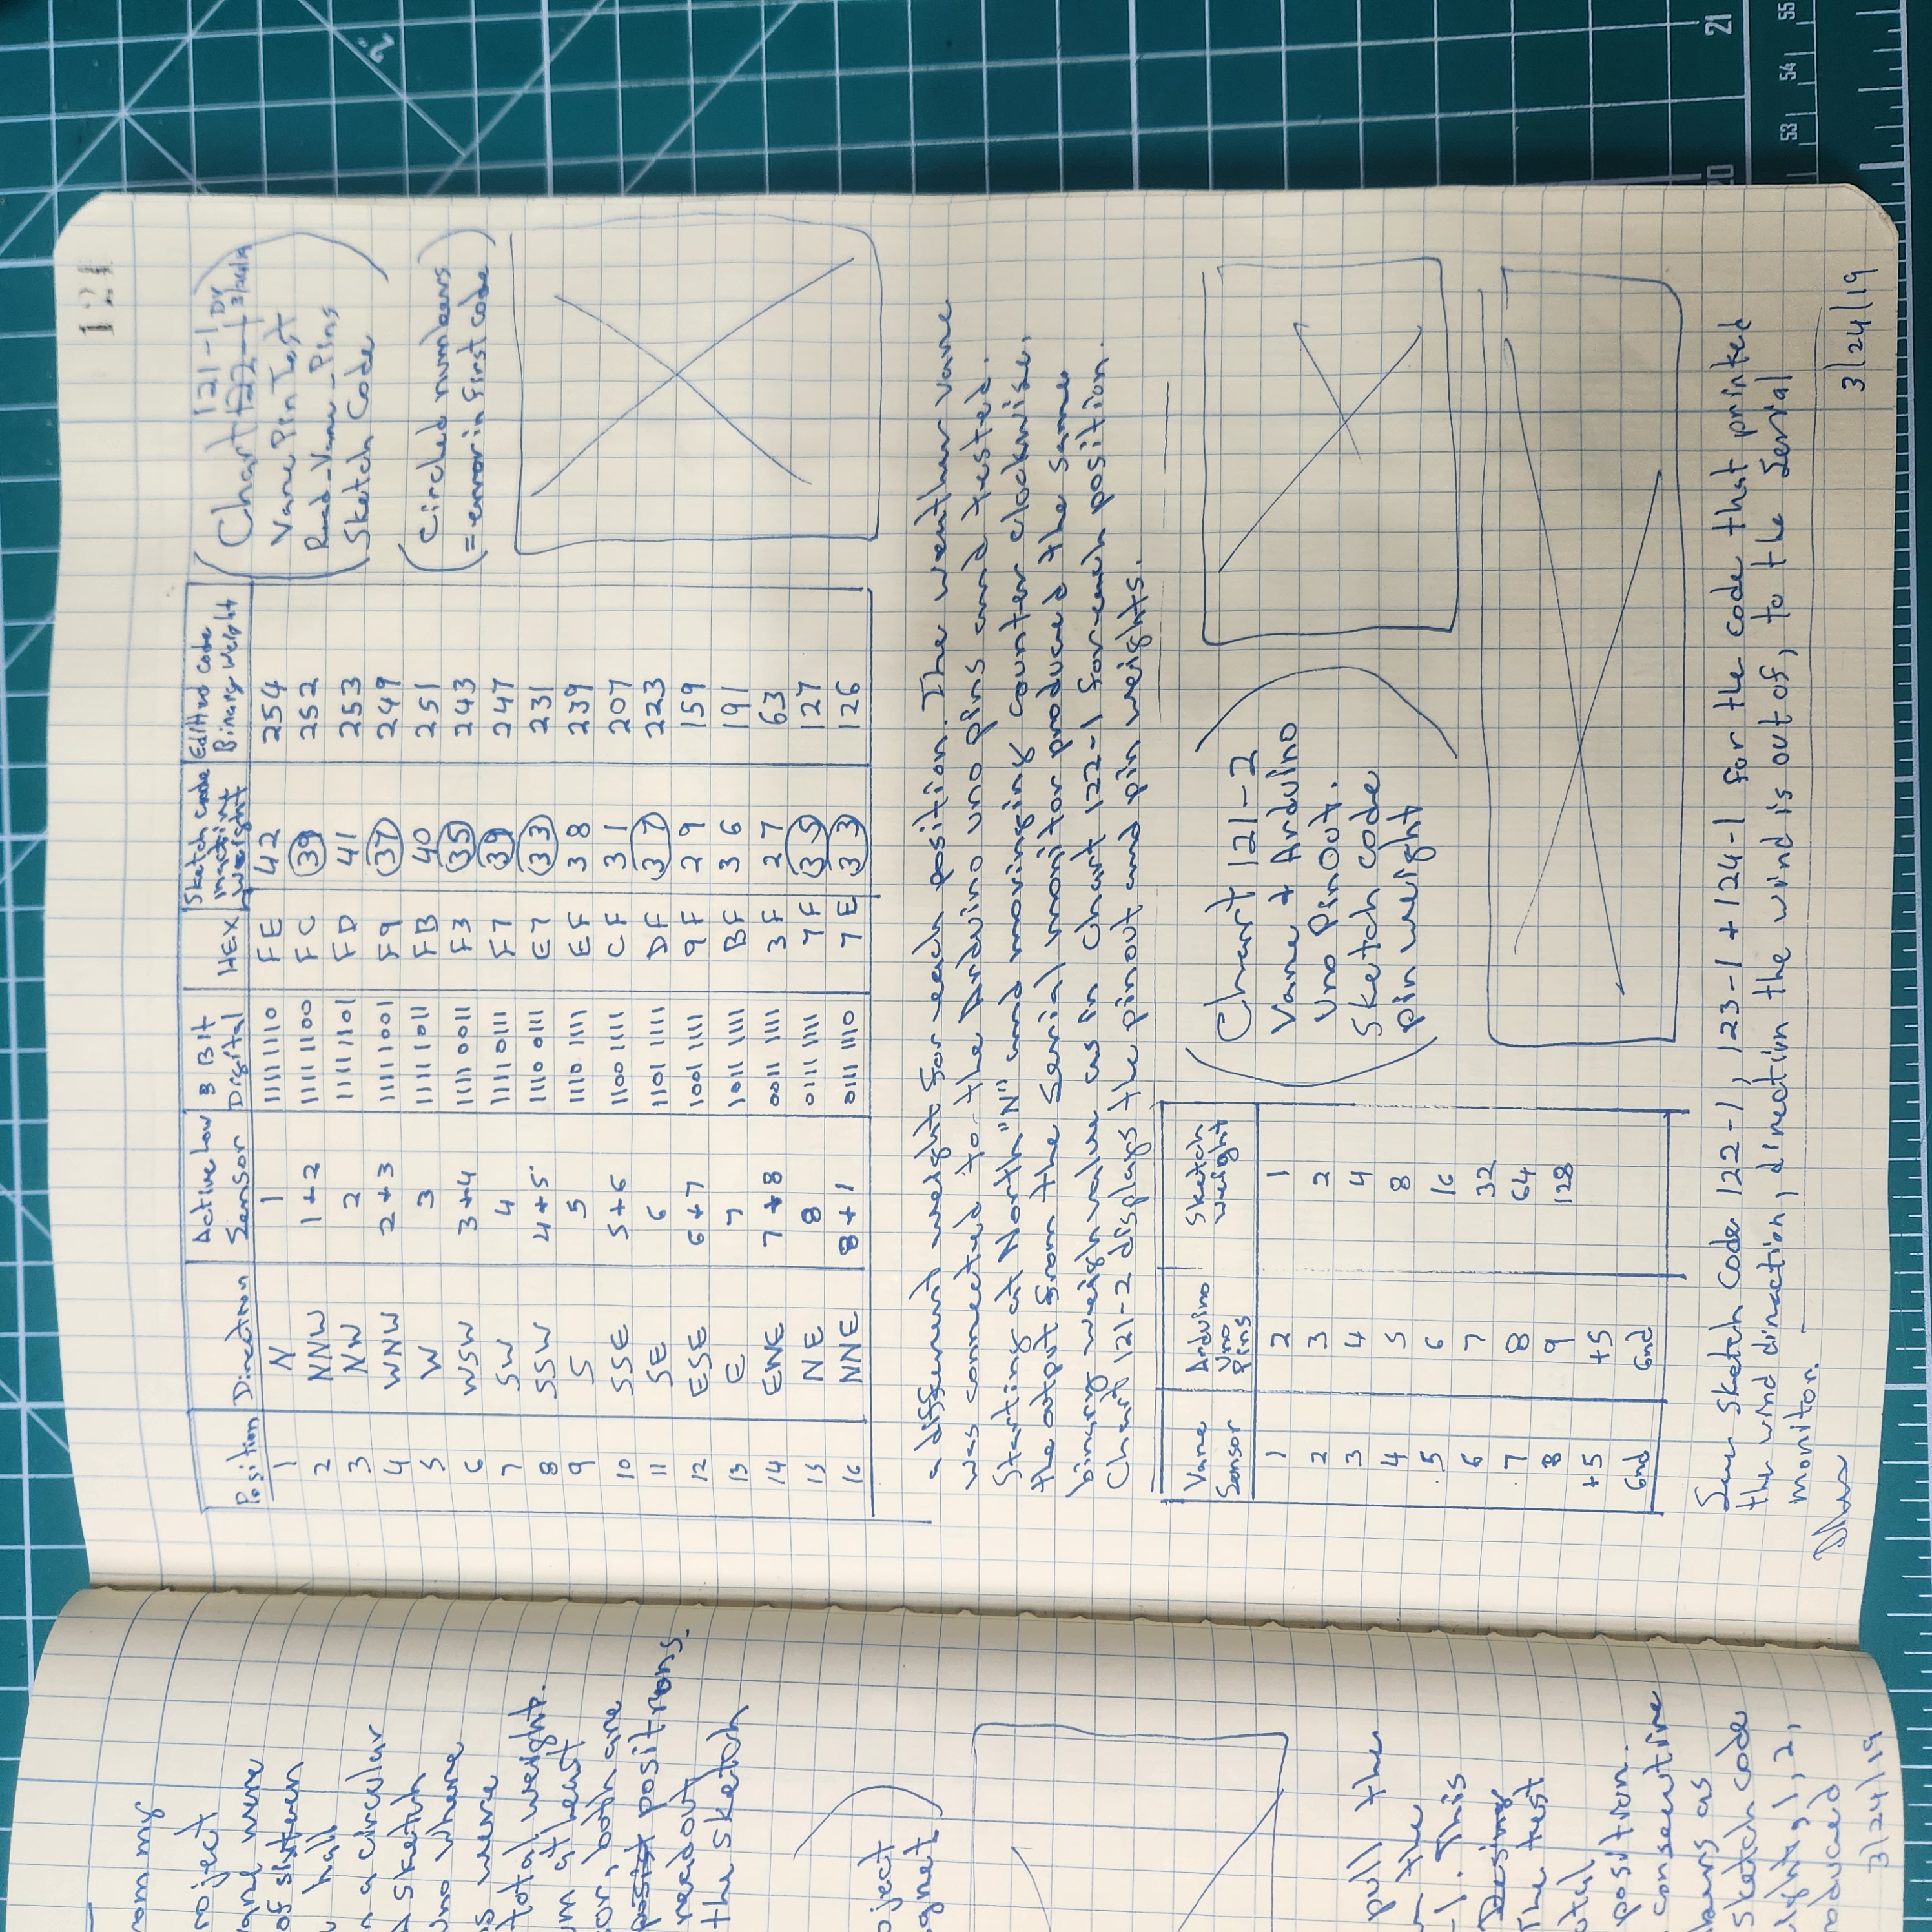 rom my
roject
ane were
of sixteen
hall
n a circular
sketch
Uno where
s were
total weight.
um at least
or, both are
posist positions.
readout
the sketch
oject
gnet
pull the
the
-1. This
Desing
The test
otal
position.
consecutive
bers as
sketch code
ight, 1, 2,
oduced
3/24/19
121
Position Direction Active Low Sensor 8 Bit Digital HEX Sketch code inactive weight Editted code Binary weight
1 N 1 11111110 FE 42 254
2 NNW 1+2 1111 1100 FC 39 252
3 NW 2 11111101 FD 41 253
4 WNW 2+3 11111001 F9 37 249
5 W 3 11111011 FB 40 251
6 WSW 3+4 1111 0011 F3 35 243
7 SW 4 11110111 F7 39 247
8 SSW 4+5 1110 0111 E7 33 231
9 S 5 1110 1111 EF 38 239
10 SSE 5+6 1100 1111 CF 31 207
11 SE 6 1101 1111 DF 37 223
12 ESE 6+7 1001 1111 9F 29 159
13 E 7 1011 1111 BF 36 191
14 ENE 7+8 0011 1111 3F 27 63
15 NE 8 0111 1111 7F 35 127
16 NNE 8+1 0111 1110 7E 33 126
121-1 DV
Chart 122-1 3/24/19
Vane Pin Test
Read_Vane_Pins
Sketch Code
Circled numbers
= error in first code
a different weight for each position. The weather vane
was connected to the Arduino uno pins and tested.
Starting at North "N" and movinging counter clockwise,
the output from the serial monitor produced the same
binary weigh value as in Chart 122-1 for each position.
Chart 121-2 displays the pinout and pin weights.
Vane Sensor Arduino Uno Pins Sketch weight
1 2 1
2 3 2
3 4 4
4 5 8
5 6 16
6 7 32
7 8 64
8 9 128
+5 +5
Gnd Gnd
Chart 121-2
Vane + Arduino
Uno PinOut.
Sketch code
pin weight
See sketch code 122-1, 123-1 + 124-1 for the code that printed
the wind dinaction, direction the wind is out of, to the Serial
monitor.
3/24/19
2"
20 21
53 54 55